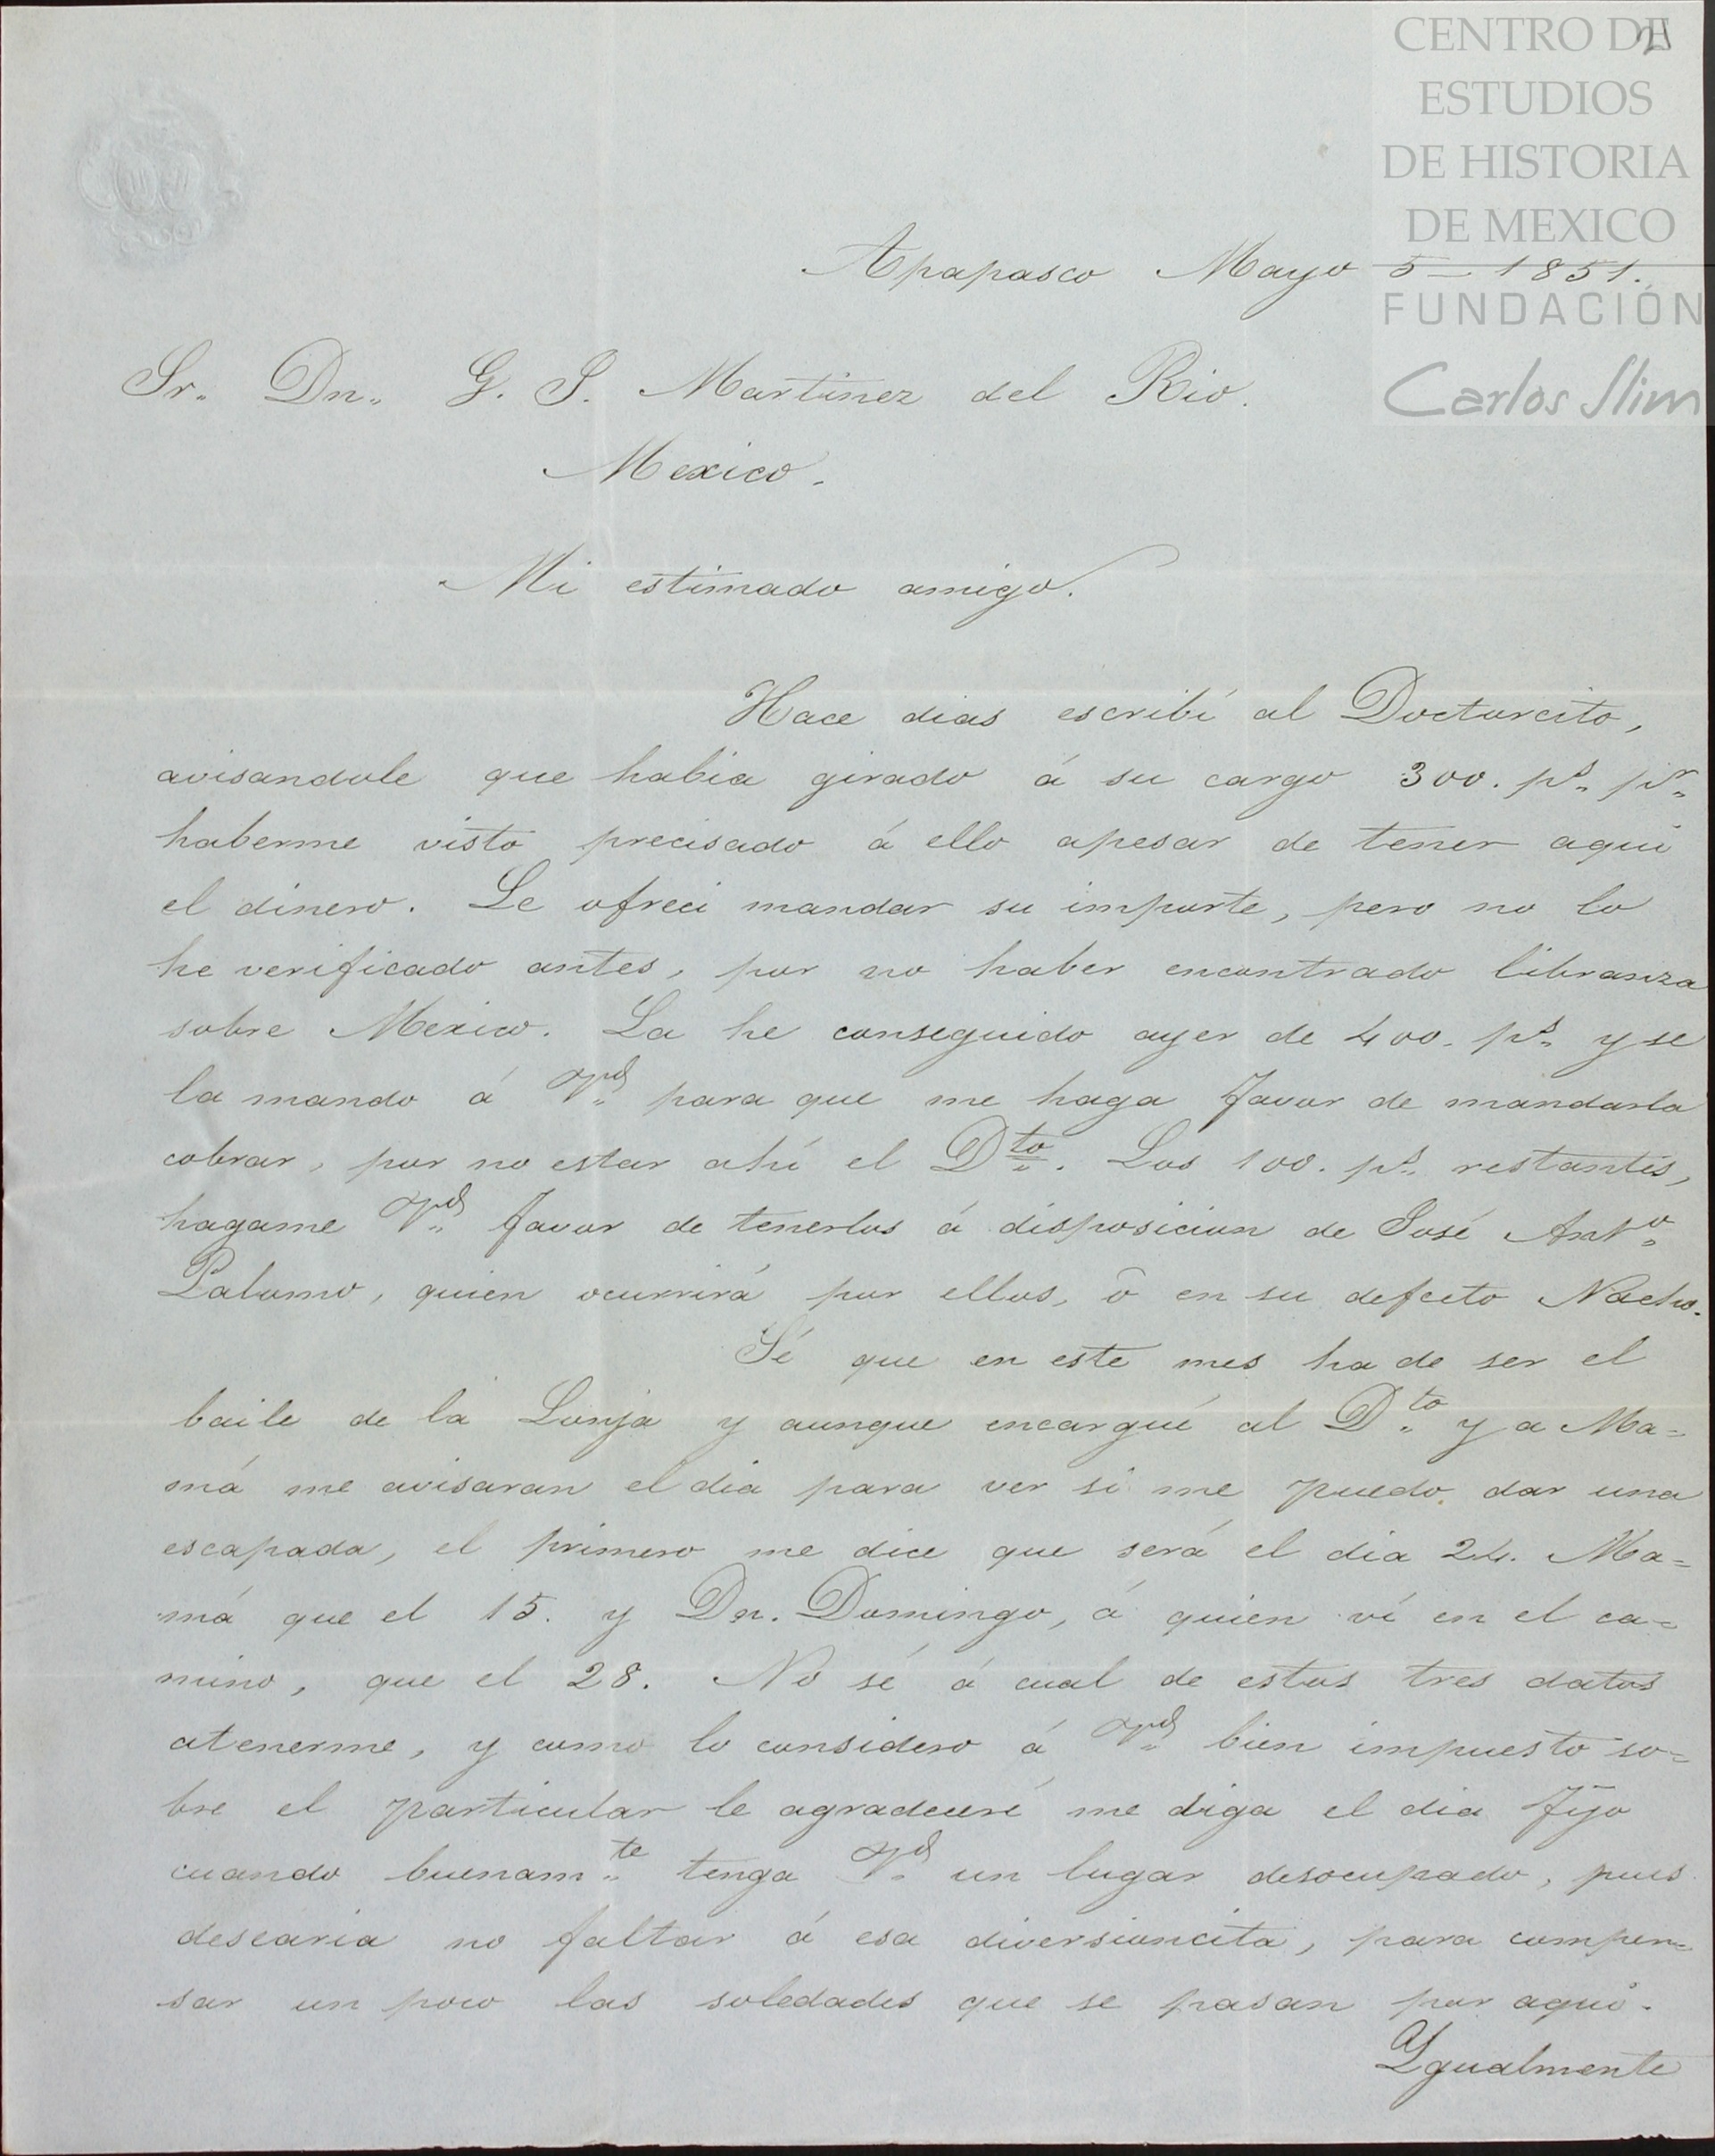 CENTRO DE
ESTUDIOS
DE HISTORIA
DE MEXICO
FUNDACIÓN
Carlos Slim
Apapasco Mayo 5 – 1851.
Sr. Dn. G. S. Martinez del Rio.
Mexico.
Mi estimado amigo.
Hace dias escribí al Doctorcito,
avisandole que habia girado á su cargo 300. ps. pr.
haberme visto precisado á ello apesar de tener aqui
el dinero. Le ofreci mandar su importe, pero no lo
he verificado antes, por no haber encontrado libranza
sobre Mexico. La he conseguido ayer de 400. ps. y se
la mando á Vd. para que me haga favor de mandarla
cobrar, por no estar ahí el Dto. Los 100. ps. restantes,
hagame Vd. favor de tenerlos á disposicion de José Anto.
Palomo, quien ocurrirá por ellos, ó en su defecto Nacho.
Sé que en este mes ha de ser el
baile de la Lonja y aunque encargué al Dto. y a Ma=
má me avisaran el dia para ver si me puedo dar una
escapada, el primero me dice que será el dia 24. Ma=
má que el 15. y Dn. Domingo, á quien ví en el ca=
mino, que el 28. No sé á cual de estos tres datos
atenerme, y como lo considero á Vd. bien impuesto so=
bre el particular le agradeceré me diga el dia fijo
cuando buenamte. tenga Vd. un lugar desocupado, pues
desearia no faltar á esa diversioncita, para compen=
sar un poco las soledades que se pasan por aqui.
Ygualmente